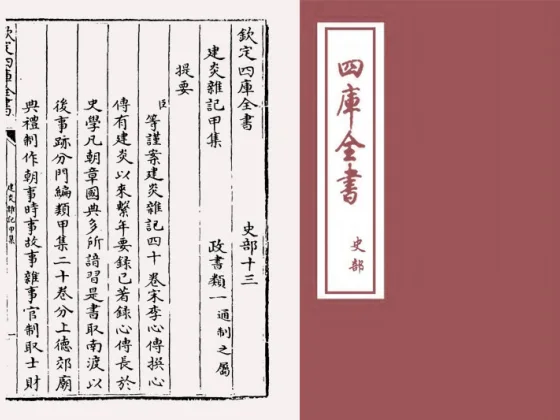 欽定四庫全書 史部十三
建炎雜記甲集 政書類一通制之屬
提要
臣等謹案建炎雜記四十卷宋李心傳撰心
傳有建炎以來繫年要錄已著錄心傳長於
史學凡朝章國典多所諳習是書取南渡以
後事跡分門編類甲集二十卷分上德郊廟
典禮制作朝事時事故事雜事官制取士財
欽定四庫全書
建炎雜記甲集
一
四庫全書
史部